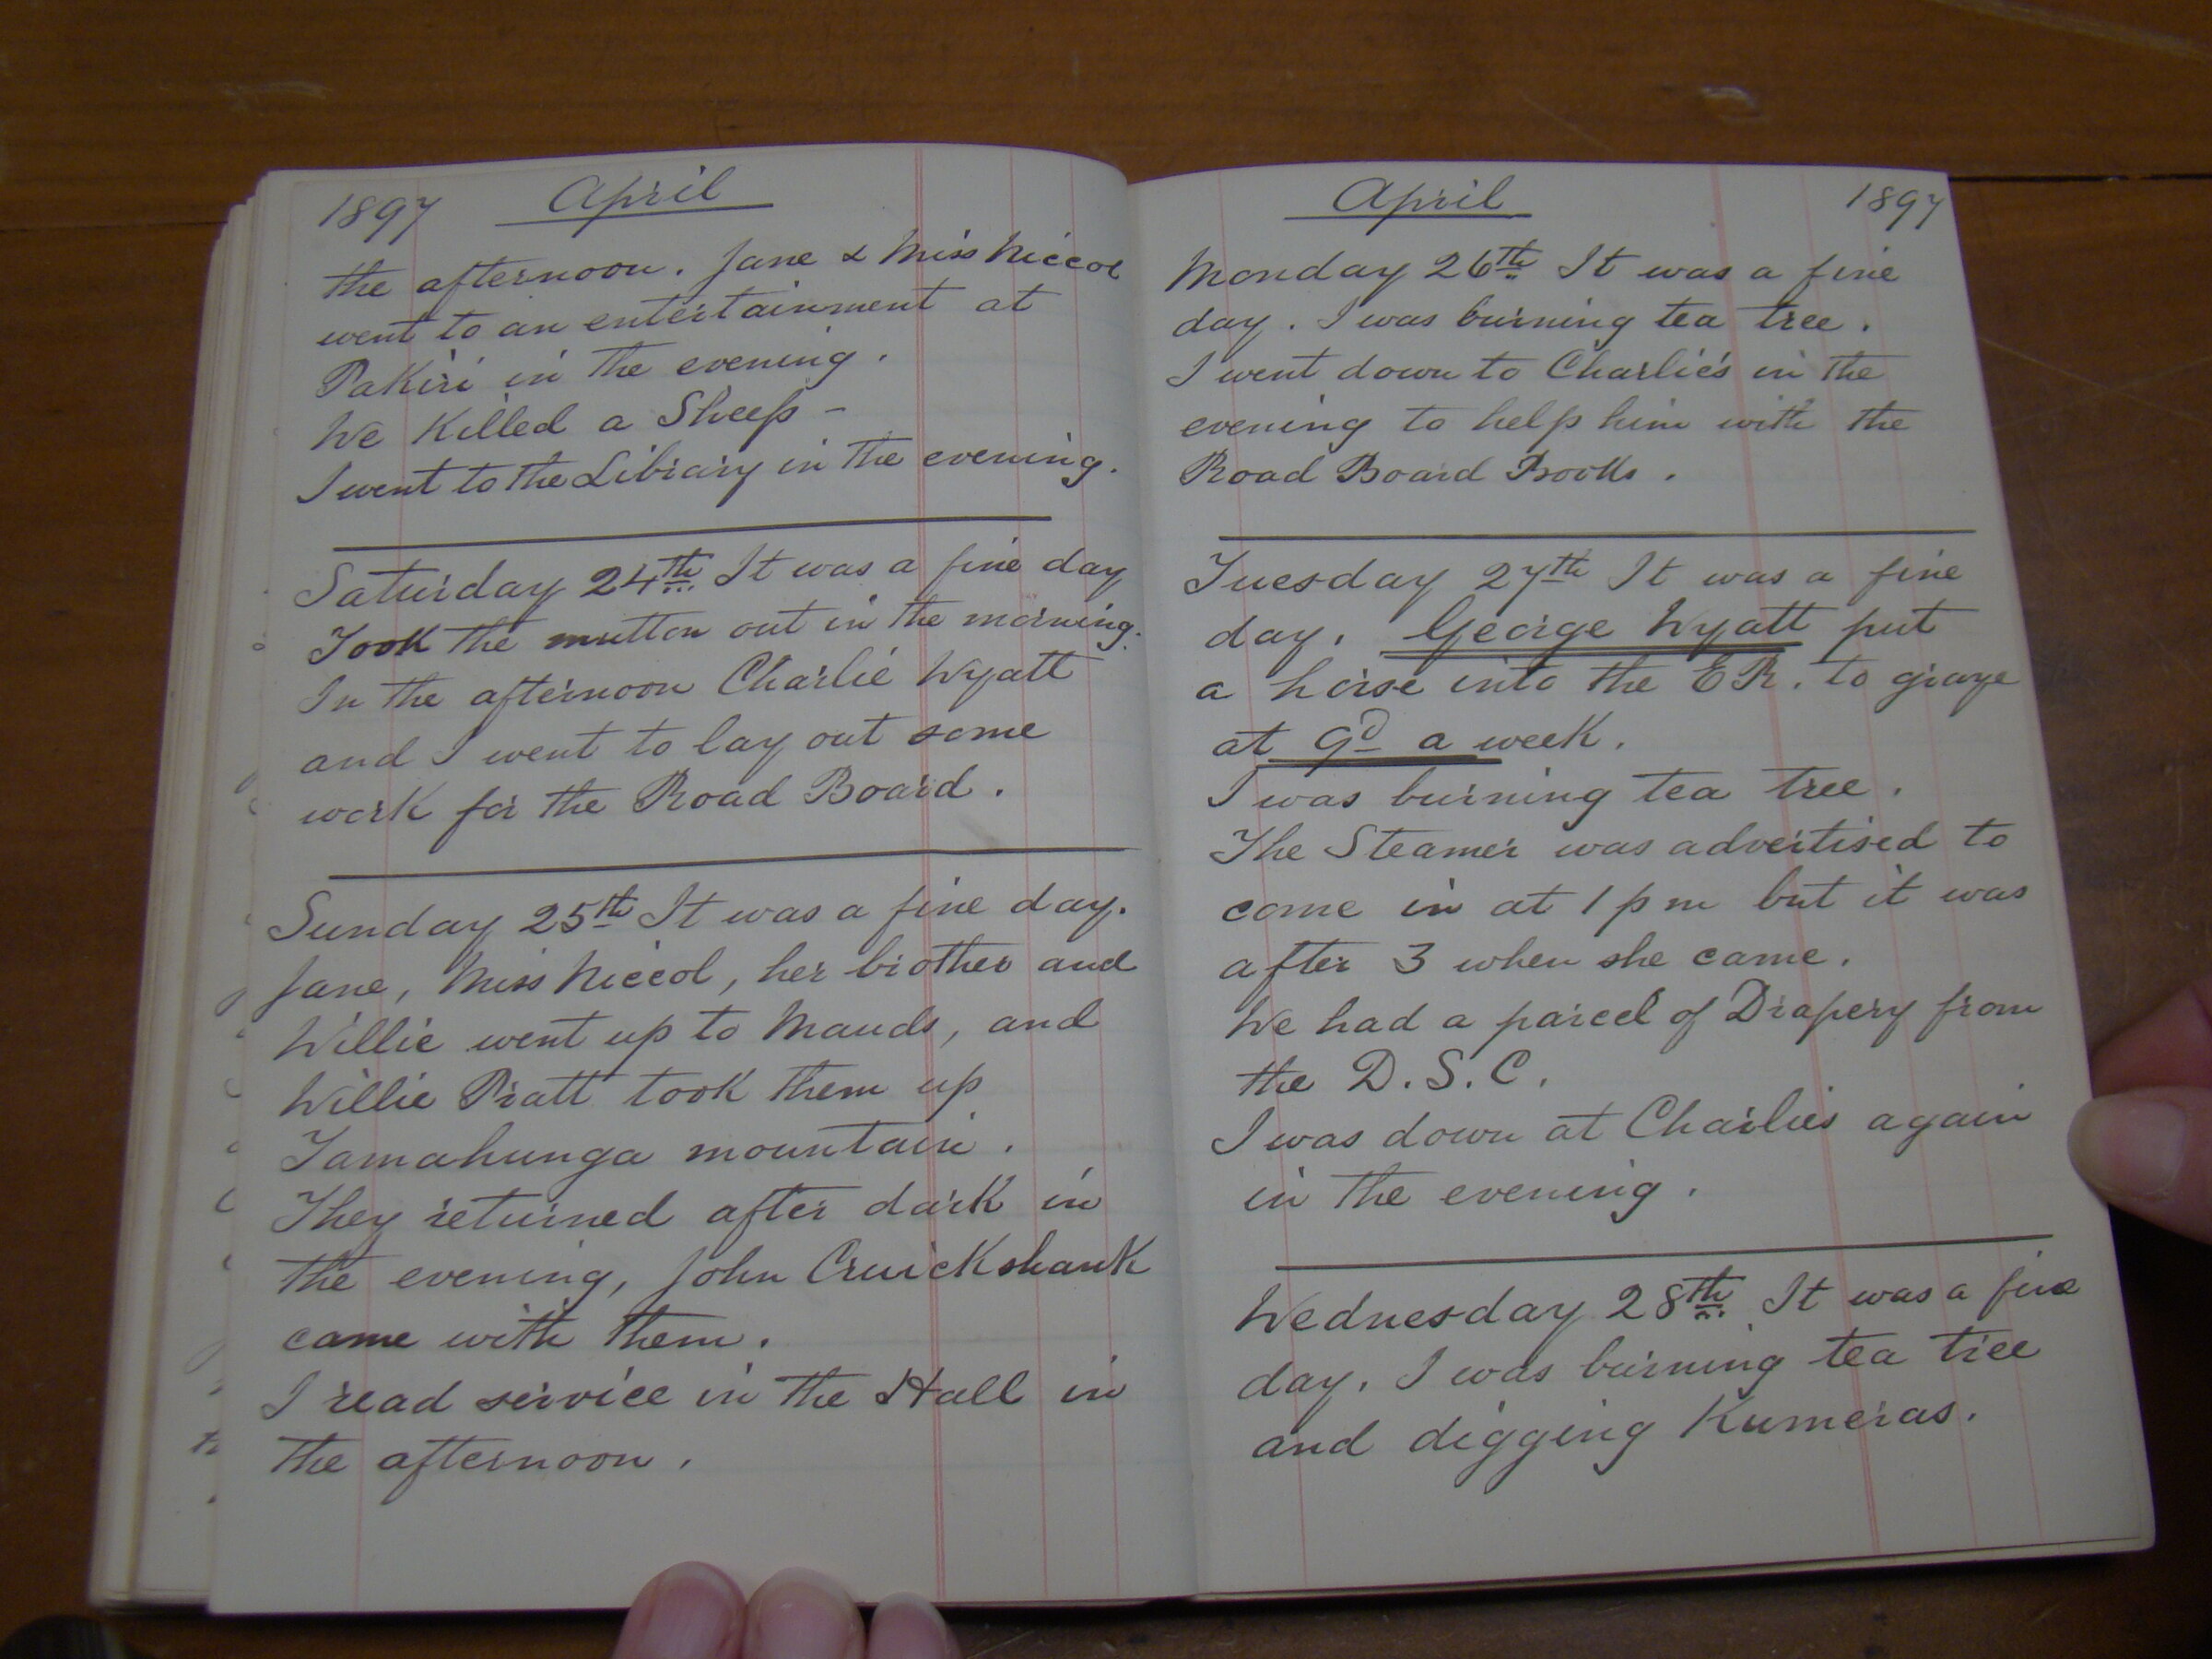 1897 April
the afternoon. Jane & Miss Niccol
went to an entertainment at
Pakiri in the evening.
We Killed a Sheep -
I went to the Library in the evening.
Saturday 24th It was a fine day
Took the mutton out in the morning.
In the afternoon Charlie Wyatt
and I went to lay out some
work for the Road Board.
Sunday 25th It was a fine day.
Jane, Miss Niccol, her brother and
Willie went up to Mauds, and
Willie Pratt took them up
Tamahunga mountain.
They returned after dark in
the evening, John Cruickshank
came with them.
I read service in the Hall in
the afternoon.
April 1897
Monday 26th It was a fine
day. I was burning tea tree.
I went down to Charlie's in the
evening to help him with the
Road Board Books.
Tuesday 27th It was a fine
day. George Wyatt put
a horse into the E R. to graze
at 9d a week.
I was burning tea tree.
The Steamer was advertised to
come in at 1 p m but it was
after 3 when she came.
We had a parcel of Drapery from
the D. S. C.
I was down at Charlies again
in the evening.
Wednesday 28th. It was a fine
day. I was burning tea tree
and digging Kumeras.